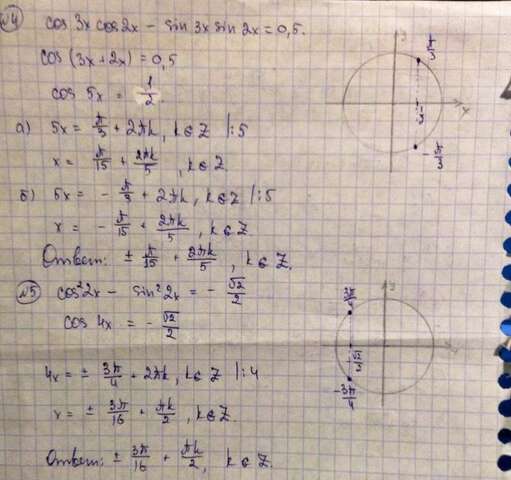 №4 cos 3x cos 2x - sin 3x sin 2x = 0,5.
cos (3x + 2x) = 0,5
cos 5x = 1/2.
а) 5x = π/3 + 2πk, k ∈ Z |:5
x = π/15 + 2πk/5, k ∈ Z.
б) 5x = - π/3 + 2πk, k ∈ Z |:5
x = - π/15 + 2πk/5, k ∈ Z
Ответ: ± π/15 + 2πk/5, k ∈ Z.
y
π/3
x
- π/3
№5 cos²2x - sin²2x = - √2/2
cos 4x = - √2/2
4x = ± 3π/4 + 2πk, k ∈ Z |:4
x = ± 3π/16 + πk/2, k ∈ Z.
Ответ: ± 3π/16 + πk/2, k ∈ Z.
3π/4
√2/2
-3π/4